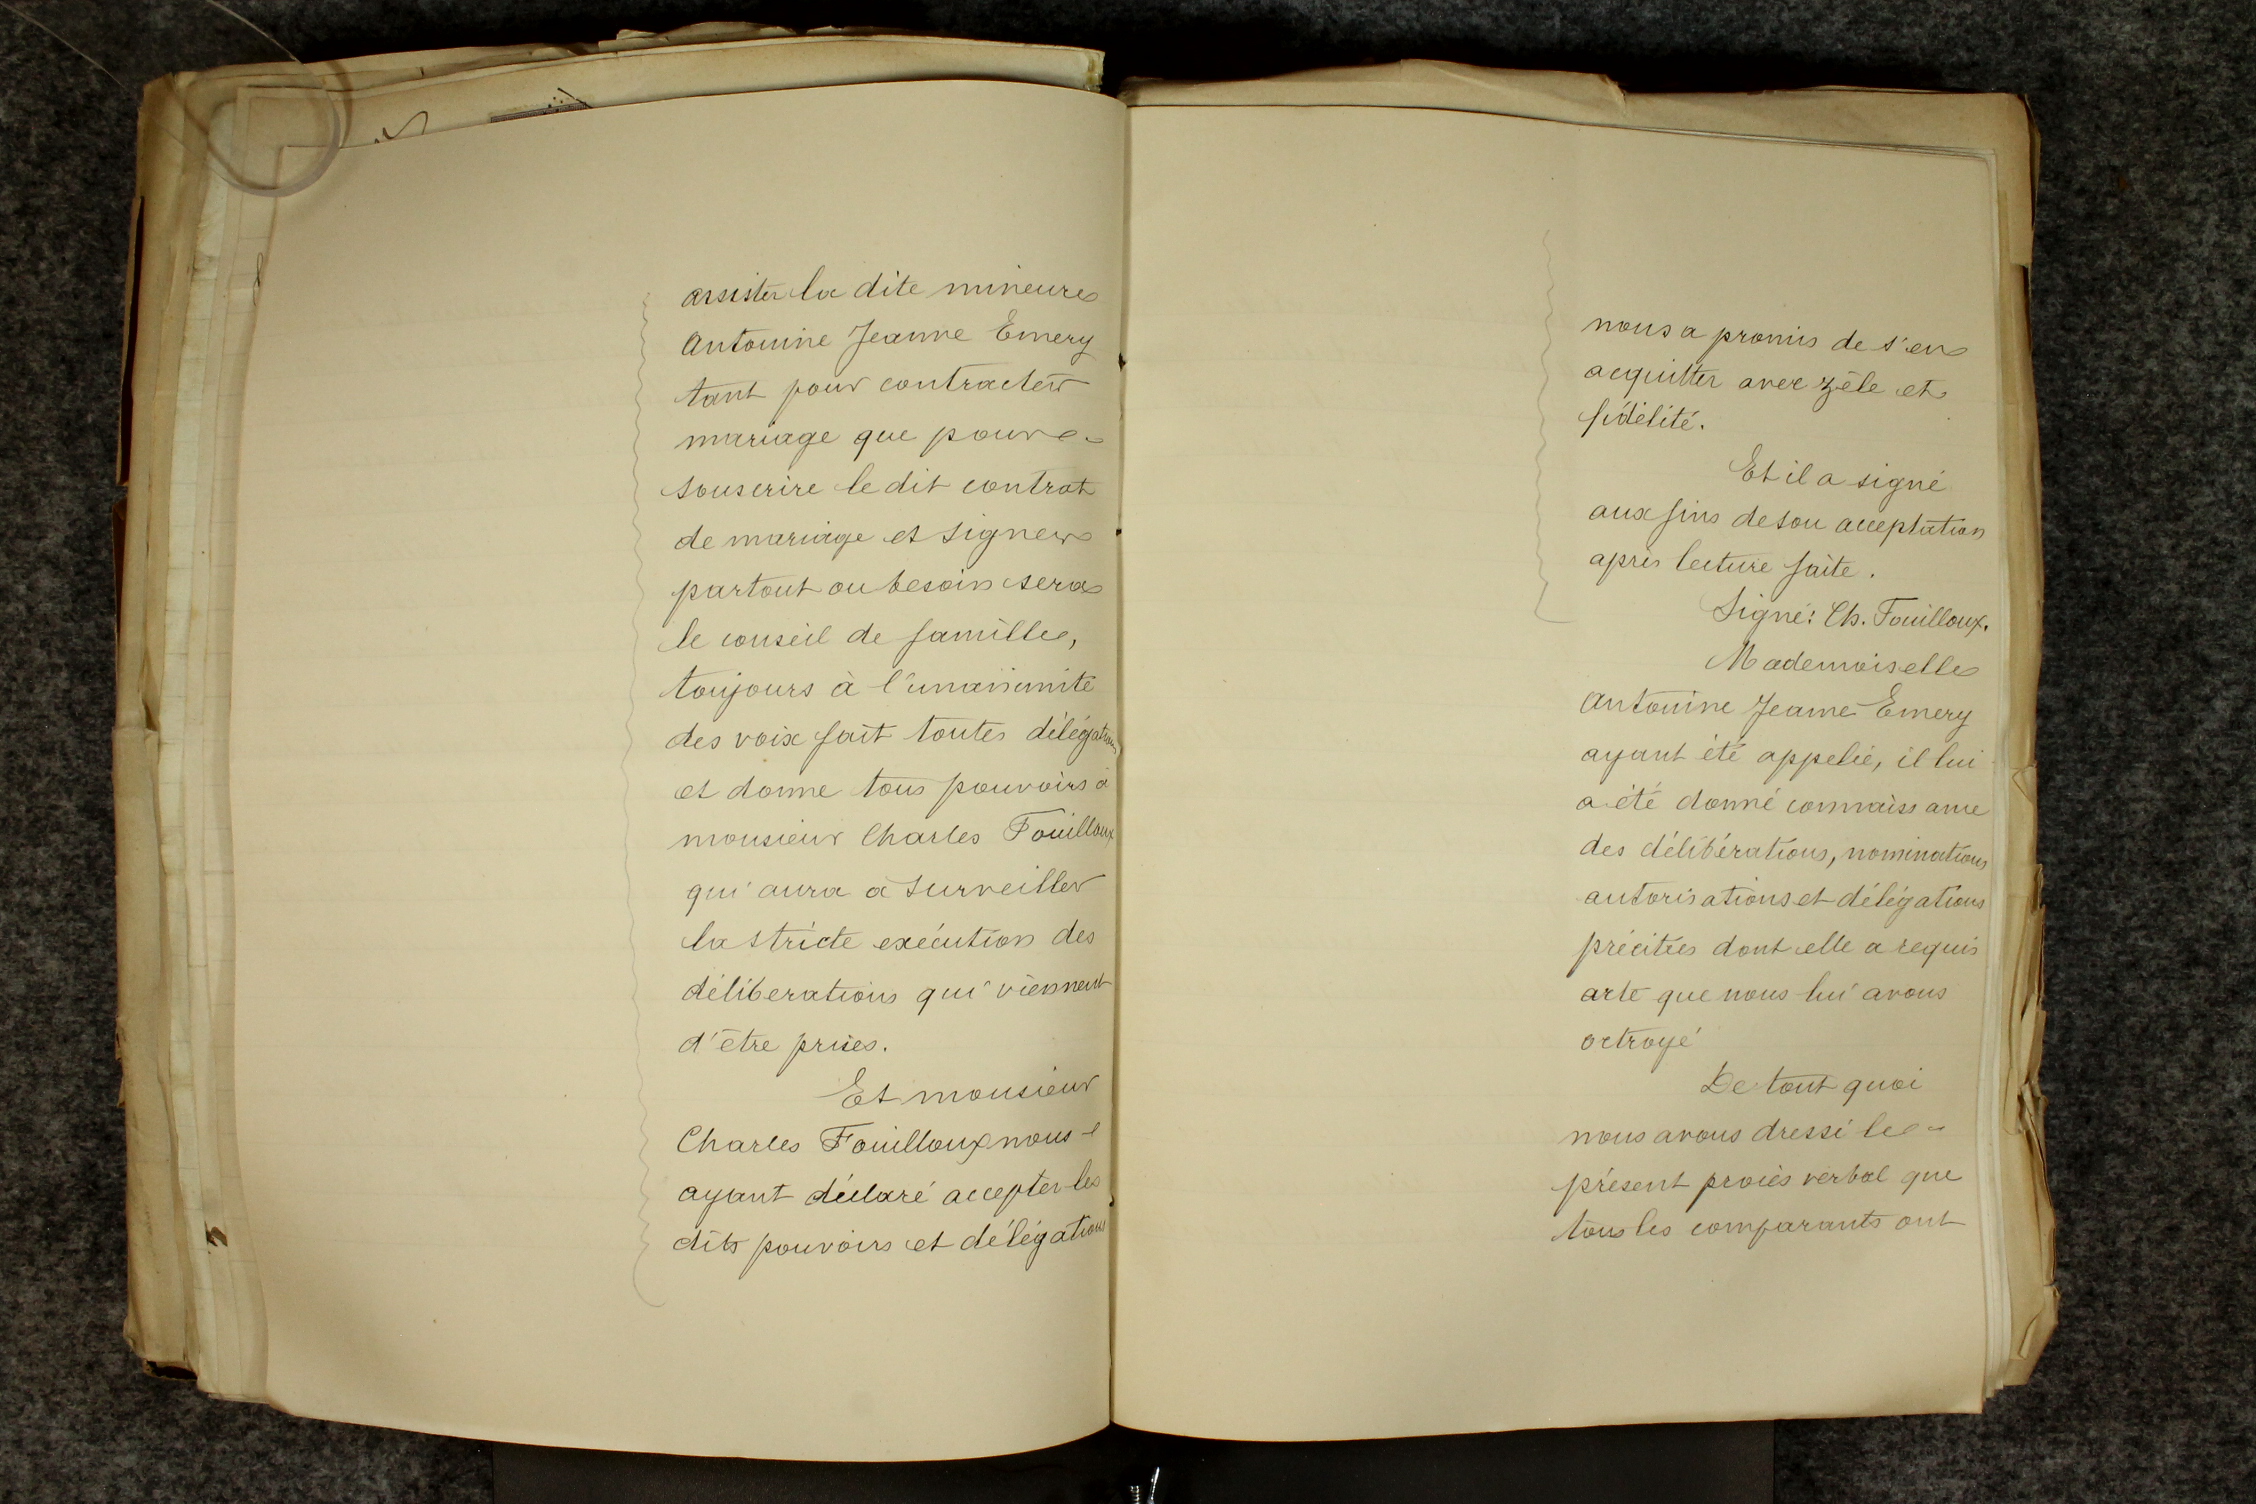 assister la dite mineure
Antonine Jeanne Emery
tant pour contracter
mariage que pour
souscrire le dit contrat
de mariage et signer
partout ou besoin sera
le conseil de famille,
toujours à l'unanimité
des voix fait toutes délégations
et donne tous pouvoirs à
monsieur Charles Fouilloux
qui aura à surveiller
la stricte exécution des
déliberations qui viennent
d'être prises.
Et monsieur
Charles Fouilloux nous
ayant déclaré accepter les
dits pouvoirs et délégations
nous a promis de s'en
acquitter avec zèle et
fidélité.
Et il a signé
aux fins de son acceptation
après lecture faite.
Signé: Ch. Fouilloux.
Mademoiselle
Antonine Jeanne Emery
ayant été appelée, il lui
a été donné connaissance
des délibérations, nominations
autorisations et délégations
précitées dont elle a requis
acte que nous lui avons
octroyé
De tout quoi
nous avons dressé le
présent procès verbal que
tous les comparants ont